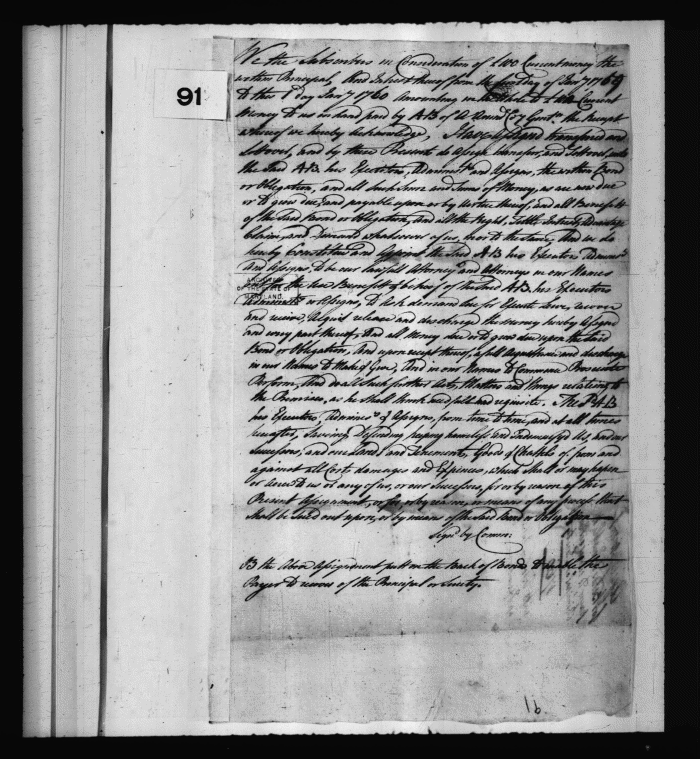 We the Subscribers in Consideration of Current money the
within Principal, this day of Jany 1769
To the 1 Day Jany 1760 Amounting in the whole to Current
Money to us in hand paid by A:B of A: Countr the Receipt
whereof we hereby Acknowledge, Have Assigned transferred and
Settover, and by these Presents do Assign, transfer, and Settover, unto
the said A:B his Executors, Administrs and Assigns, the within Bond
or Obligation, and all such Sum and Sums of Money, as are now due
or to grow due, and payable upon or by Virtue thereof, and all Benefitt
of the Said Bond or Obligation, and all the Right, Tittle, Interest, Advantage
Claim, and Demand whatsoever of us, in or to the same, And we do
hereby Constitute and Appoint the Said A:B his Executors Administrs
And Assigns, to be our lawfull Attorney and Attorneys in our Names
for the Use Benefitt & behoof of the Said A:B, his Executors
OF THE STATE OF
MARYLAND.
Administrs or Assigns, To Ask demand Sue for Levie, recover
and receive, Acquit release and discharge the money hereby Assigned
and every part thereof, and all Money due or to grow due upon the Said
Bond or Obligation, And upon receipt thereof, a full Acquittance and discharge
in our Names to Make & Give, And in our Names to Commence Prosecute
Perform, And do all Such further Acts, Matters and things relating to
the Premises, as he Shall think needfull and requisite. The Sd A:B
his Executors, Adminrs & Assigns, from time to time, and at all times
hereafter, Saving, Defending keeping harmless and Indemnifyd Us, and our
Successors, and our Lands and Tenements, Goods & Chattels of, from and
against all Costs damages and Expences, which Shall or may happen
or Acrue to us or any of us, or our Successors, for or by reason of this
Present Assignment, or for or by reason or means of any process that
Shall be Sued out upon, or by means of the Said Bond or Obligation
Signd by Commrs:
NB the Above Assignment put on the Back of Bonds to enable the
Payer to recover of the Principal or Surety.
91
16.